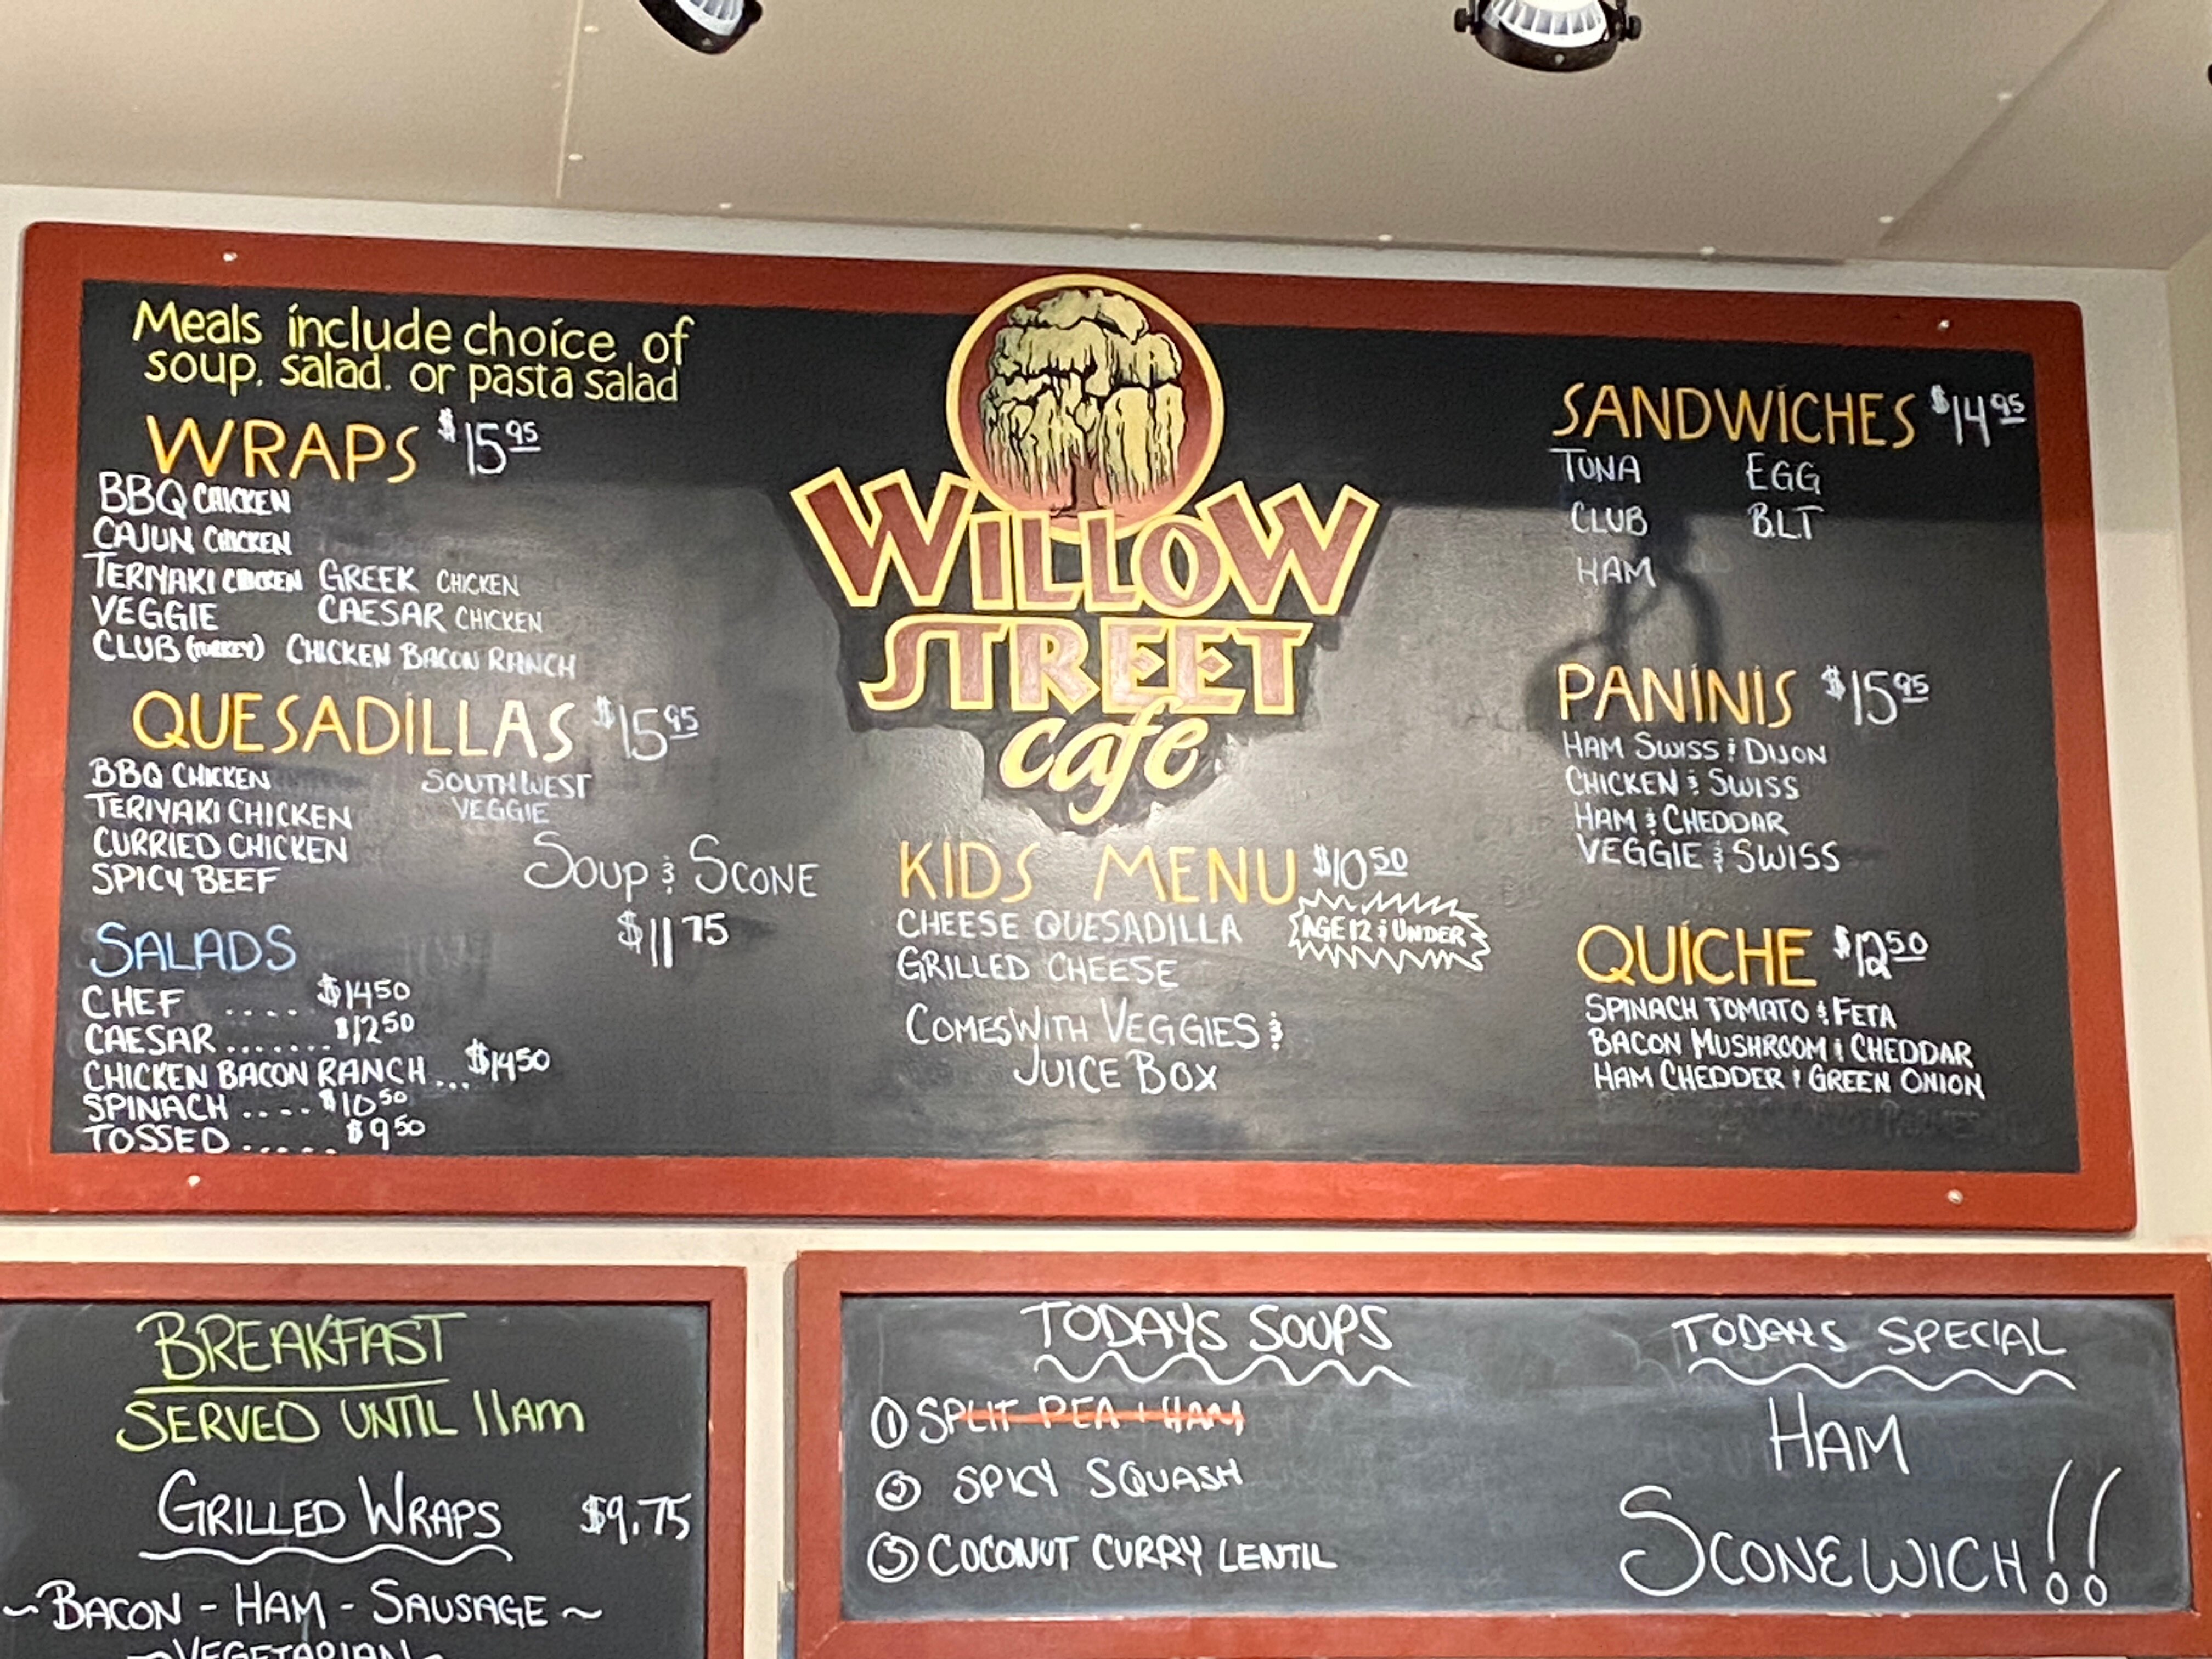 Meals include choice of
soup, salad, or pasta salad
WRAPS $15.95
BBQ CHICKEN
CAJUN CHICKEN
TERIYAKI CHICKEN GREEK CHICKEN
VEGGIE CAESAR CHICKEN
CLUB (TURKEY) CHICKEN BACON RANCH
QUESADILLAS $15.95
BBQ CHICKEN SOUTHWEST
TERIYAKI CHICKEN VEGGIE
CURRIED CHICKEN
SPICY BEEF
SOUP & SCONE
$11 75
SALADS
CHEF .... $14 50
CAESAR ....... $12 50
CHICKEN BACON RANCH ... $14 50
SPINACH .... $10 50
TOSSED ..... $9 50
WILLOW
STREET
cafe
KIDS MENU $10 50
AGE 12 & UNDER
CHEESE QUESADILLA
GRILLED CHEESE
COMES WITH VEGGIES &
JUICE BOX
SANDWICHES $14 95
TUNA EGG
CLUB BLT
HAM
PANINIS $15 95
HAM SWISS & DIJON
CHICKEN & SWISS
HAM & CHEDDAR
VEGGIE & SWISS
QUICHE $12 50
SPINACH TOMATO & FETA
BACON MUSHROOM & CHEDDAR
HAM CHEDDER & GREEN ONION
BREAKFAST
SERVED UNTIL 11am
GRILLED WRAPS $9.75
~BACON - HAM - SAUSAGE~
~VEGETARIAN~
TODAYS SOUPS
① SPLIT PEA & HAM
② SPICY SQUASH
③ COCONUT CURRY LENTIL
TODAYS SPECIAL
HAM
SCONEWICH!!